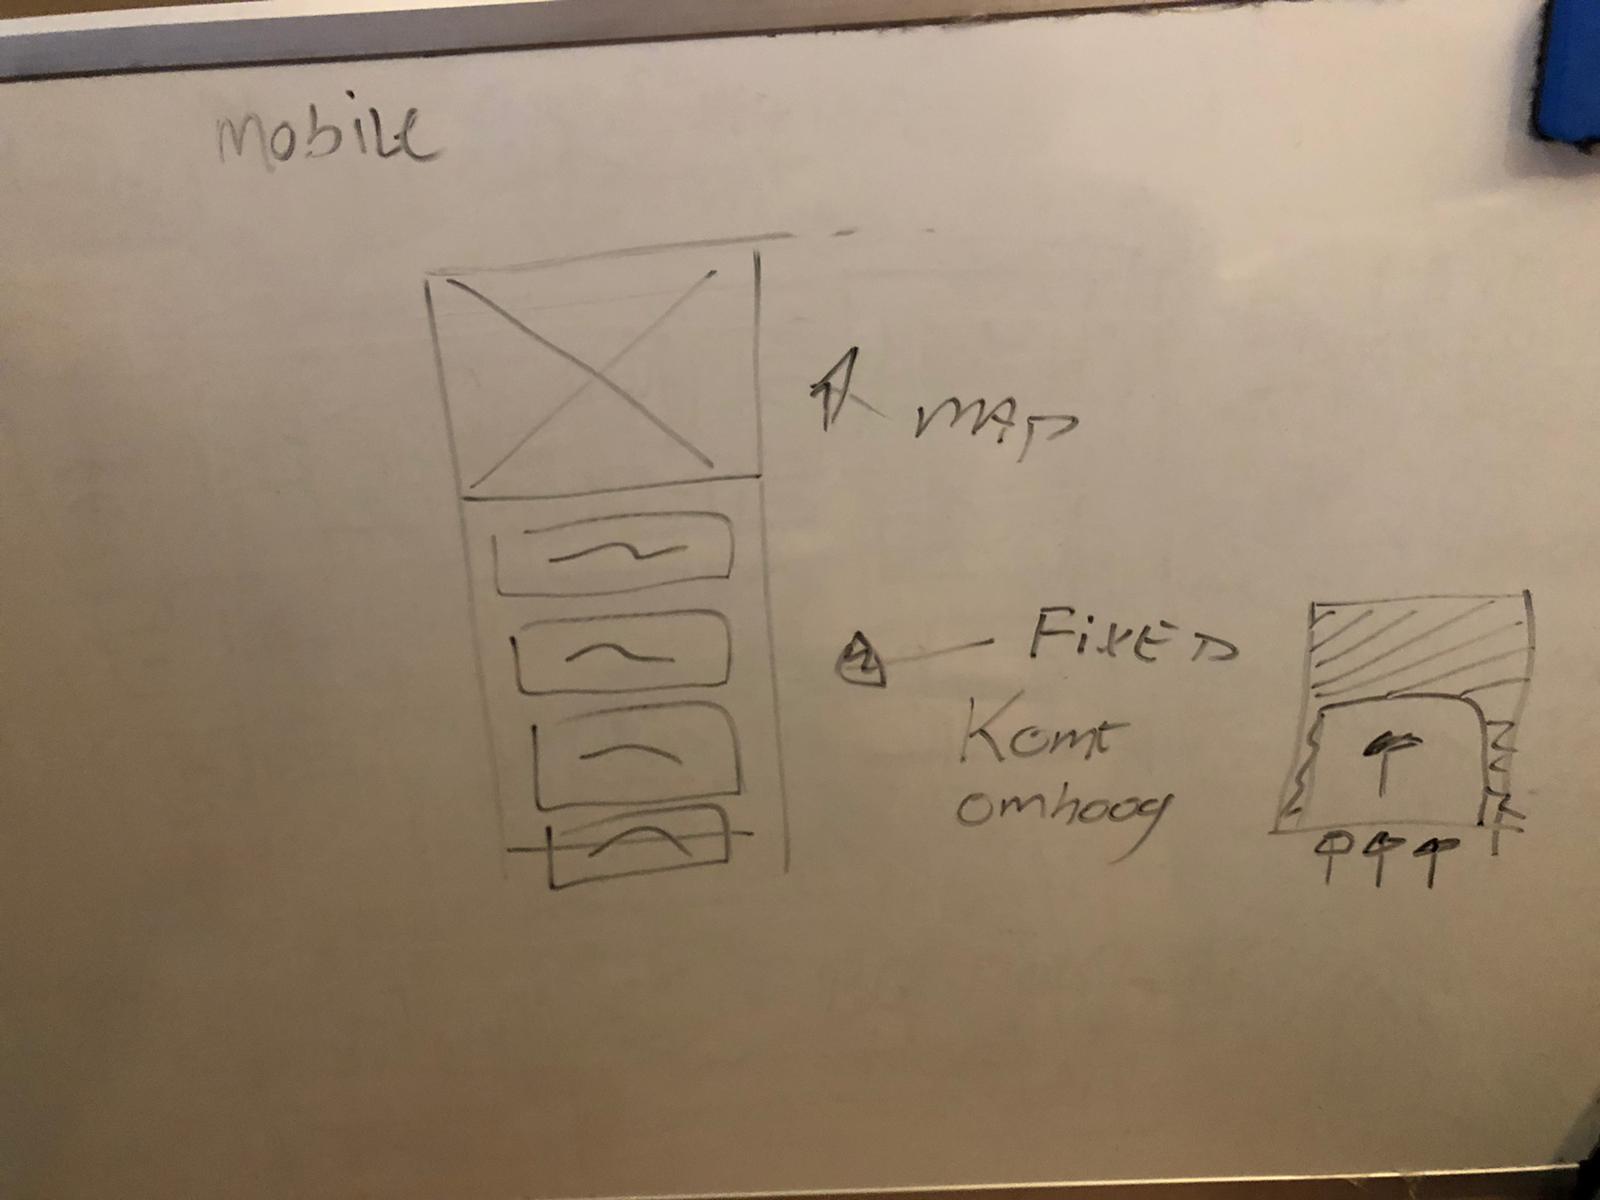 mobile
MAP
FixED
Komt
omhoog